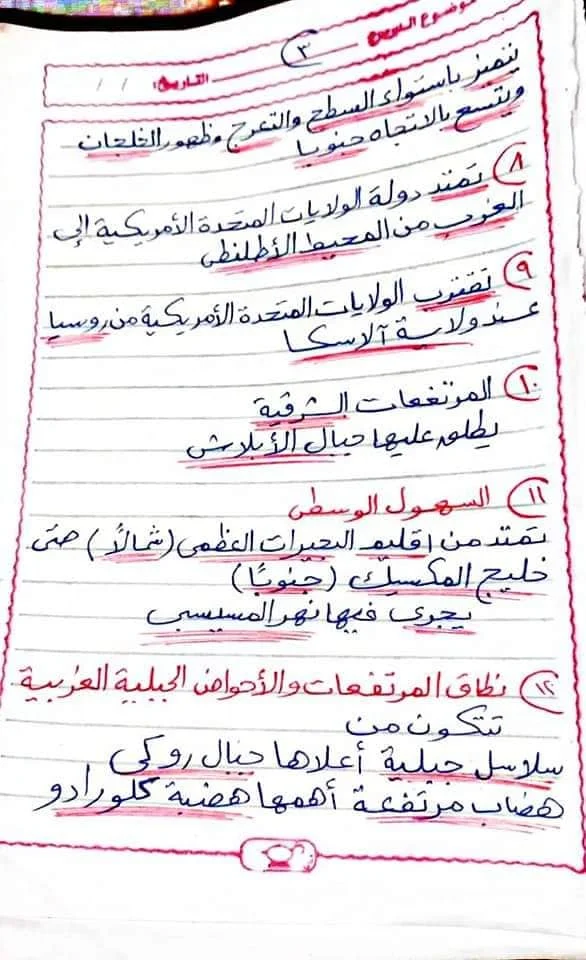 موضوع الدرس
٣
التاريخ: / /
يتميز باستواء السطح والتعرج وظهور الخلجان
ويتسع بالاتجاه جنوبا
٨) تمتد دولة الولايات المتحدة الأمريكية إلى
الغرب من المحيط الأطلنطى
٩) تقترب الولايات المتحدة الأمريكية من روسيا
عند ولاية آلاسكا
١٠) المرتفعات الشرقية
يطلق عليها جبال الأبلاش
١١) السهول الوسطى
تمتد من إقليم البحيرات العظمى (شمالاً) حتى
خليج المكسيك (جنوبًا)
يجرى فيها نهر المسيسبى
١٢) نطاق المرتفعات والأحواض الجبلية الغربية
تتكون من
سلاسل جبلية أعلاها جبال روكي
هضاب مرتفعة أهمها هضبة كلورادو